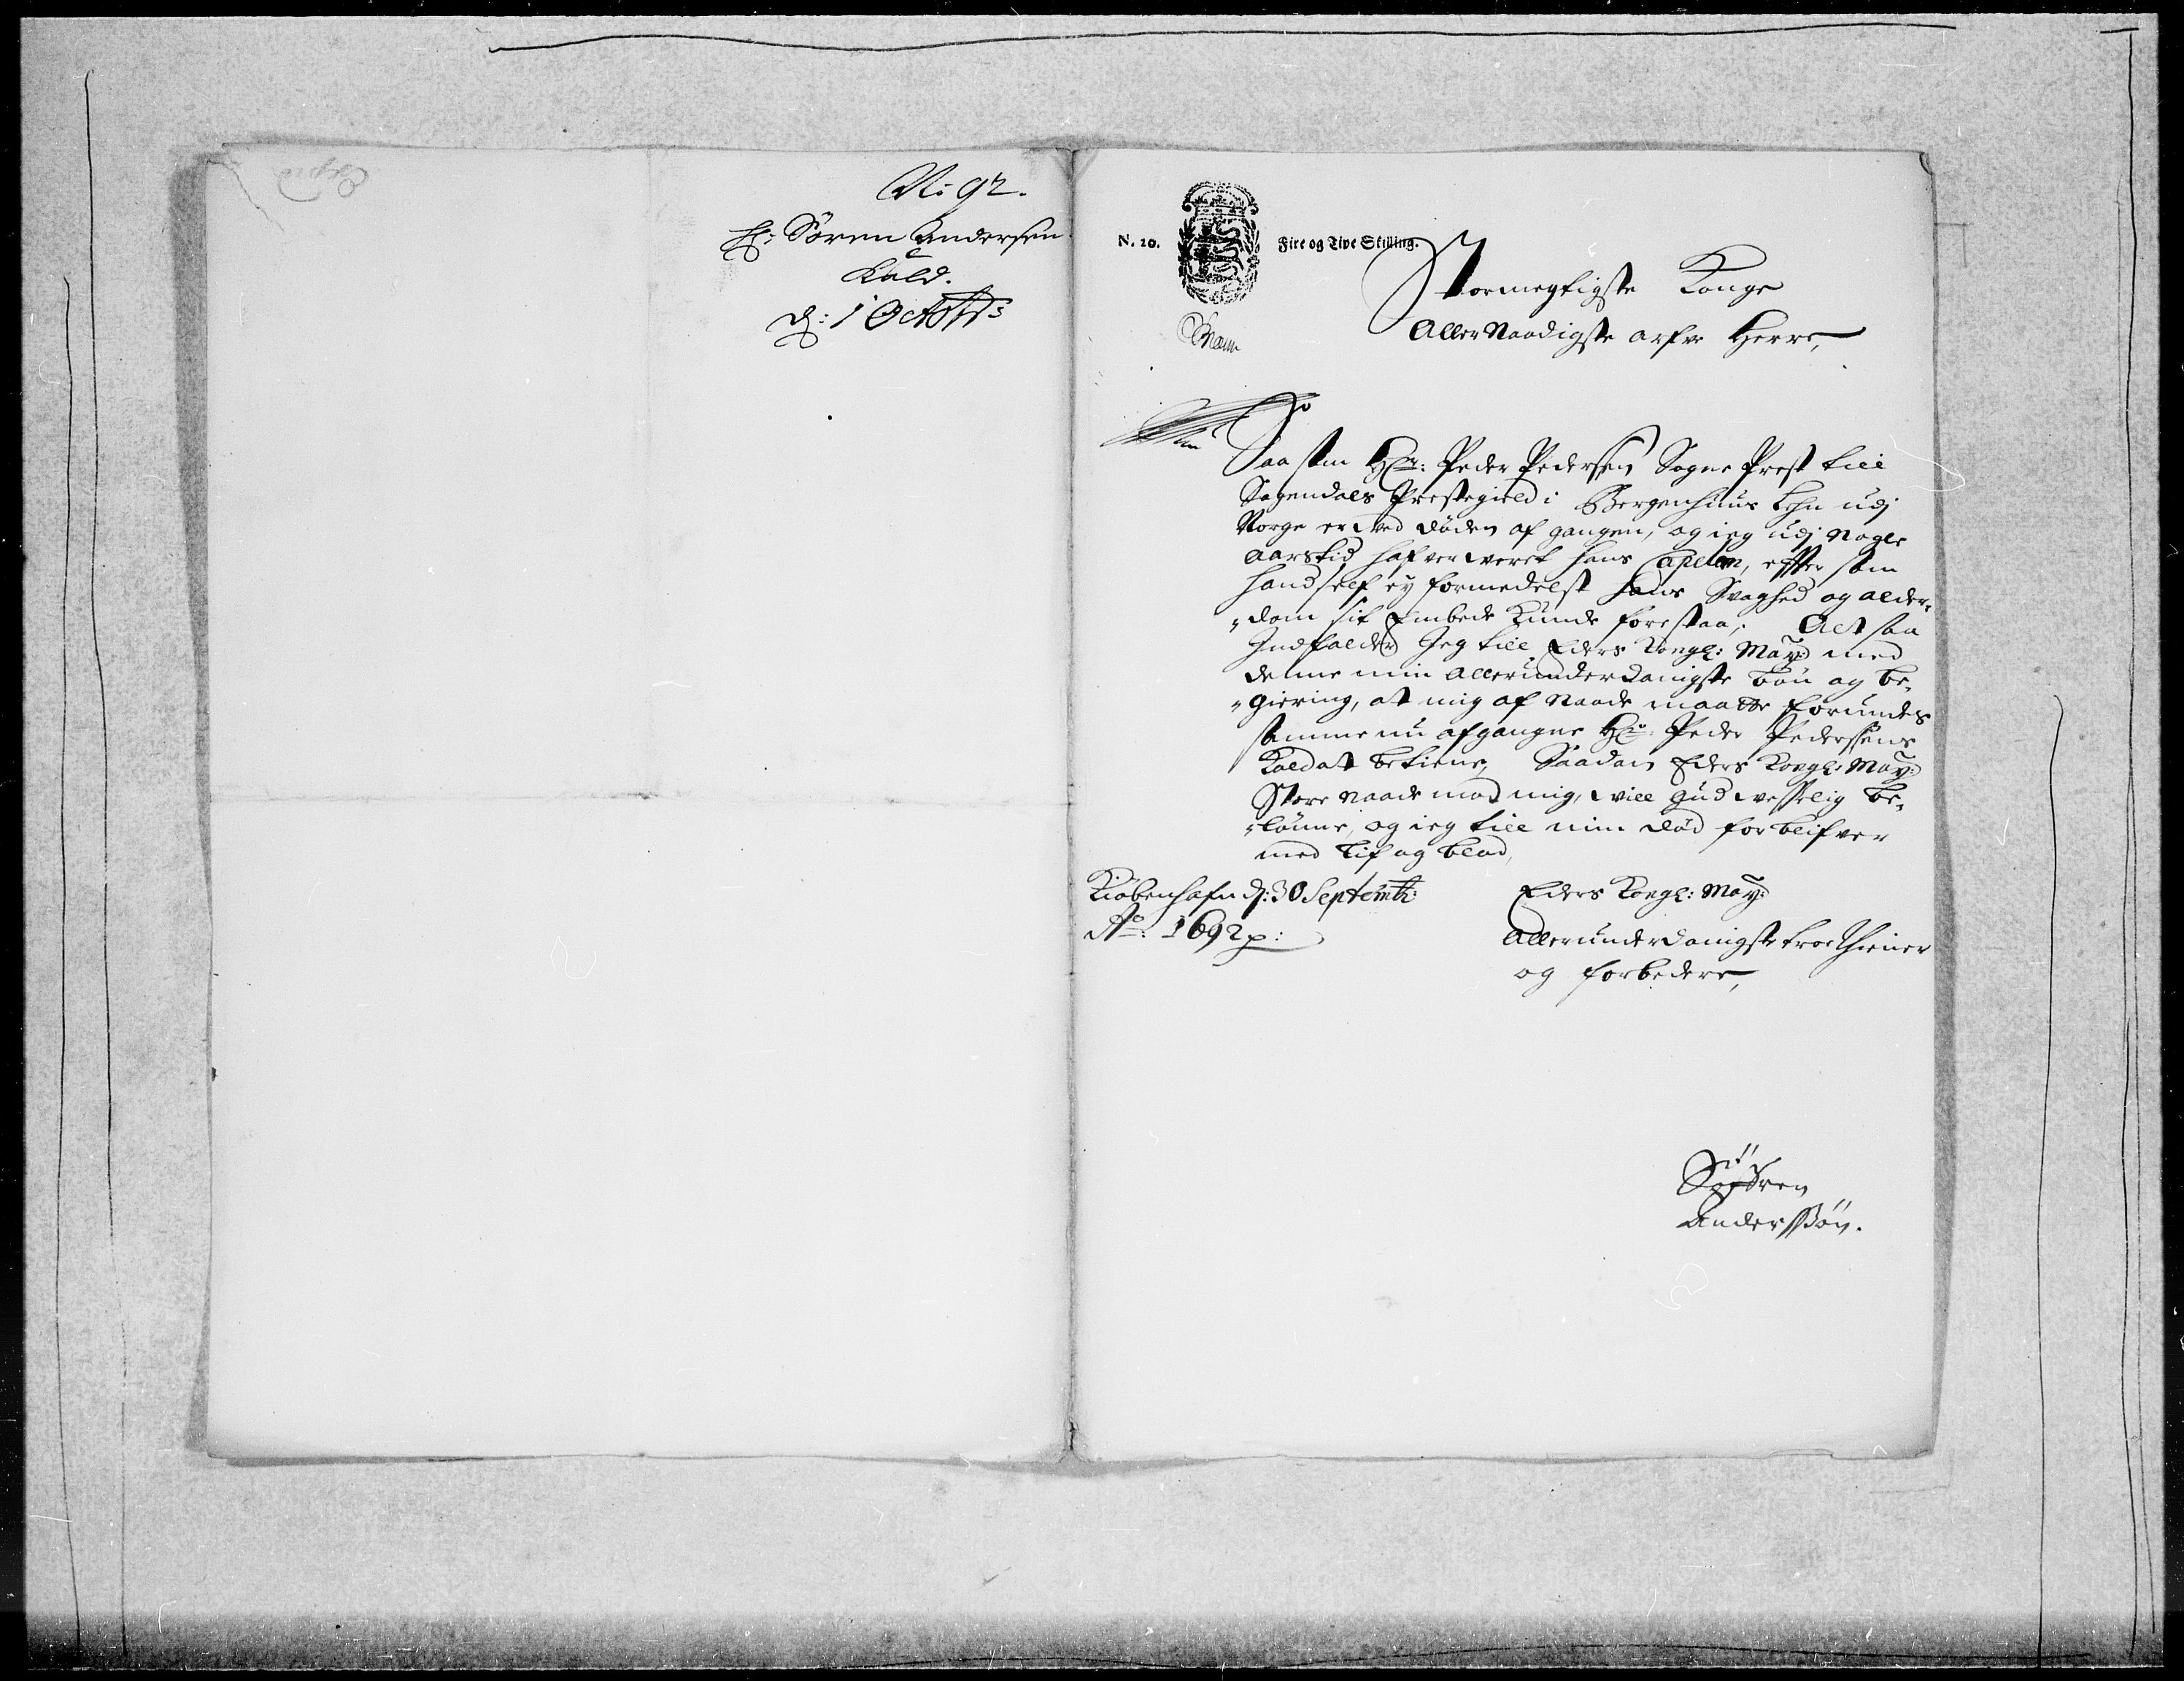 N: 92.
H: Søren Andersen
Kald.
d: 1 Octobr:
N. 20.
Fire og Tive Skilling.
Stormegtigste Konge
Aller Naadigste arfve Herre,
Saasom Hr: Peder Pedersen Sogne Prest till
Sogendals Prestegield i Bergenhuus Lehn udj
Norge er ved døden afgangen, og ieg udj nogle
aarstid hafver verret hans Capelan, efftersom
hand self ey formedelst hans Svaghed og alder-
"dom sit Embede kunde forestaa; Altsaa
Indfalder Jeg till Eders Kongl: May: med
denne min allerunderdanigste bøn og be-
"giering, at mig af Naade maatte forundes
samme nu afgangne Hr: Peder Pedersens
Kald at betiene, Saadan Eders Kongl: May:
Store naade mod mig, vill Gud visselig be-
"lønne, og ieg till min død forblifver
med lif og blod,
Kiøbenhafn d: 30 Septemb:
Ao: 1692 p:
Eders Kongl: May:
Allerunderdanigste troe thiener
og forbedere,
Søfren
Anderssøn.